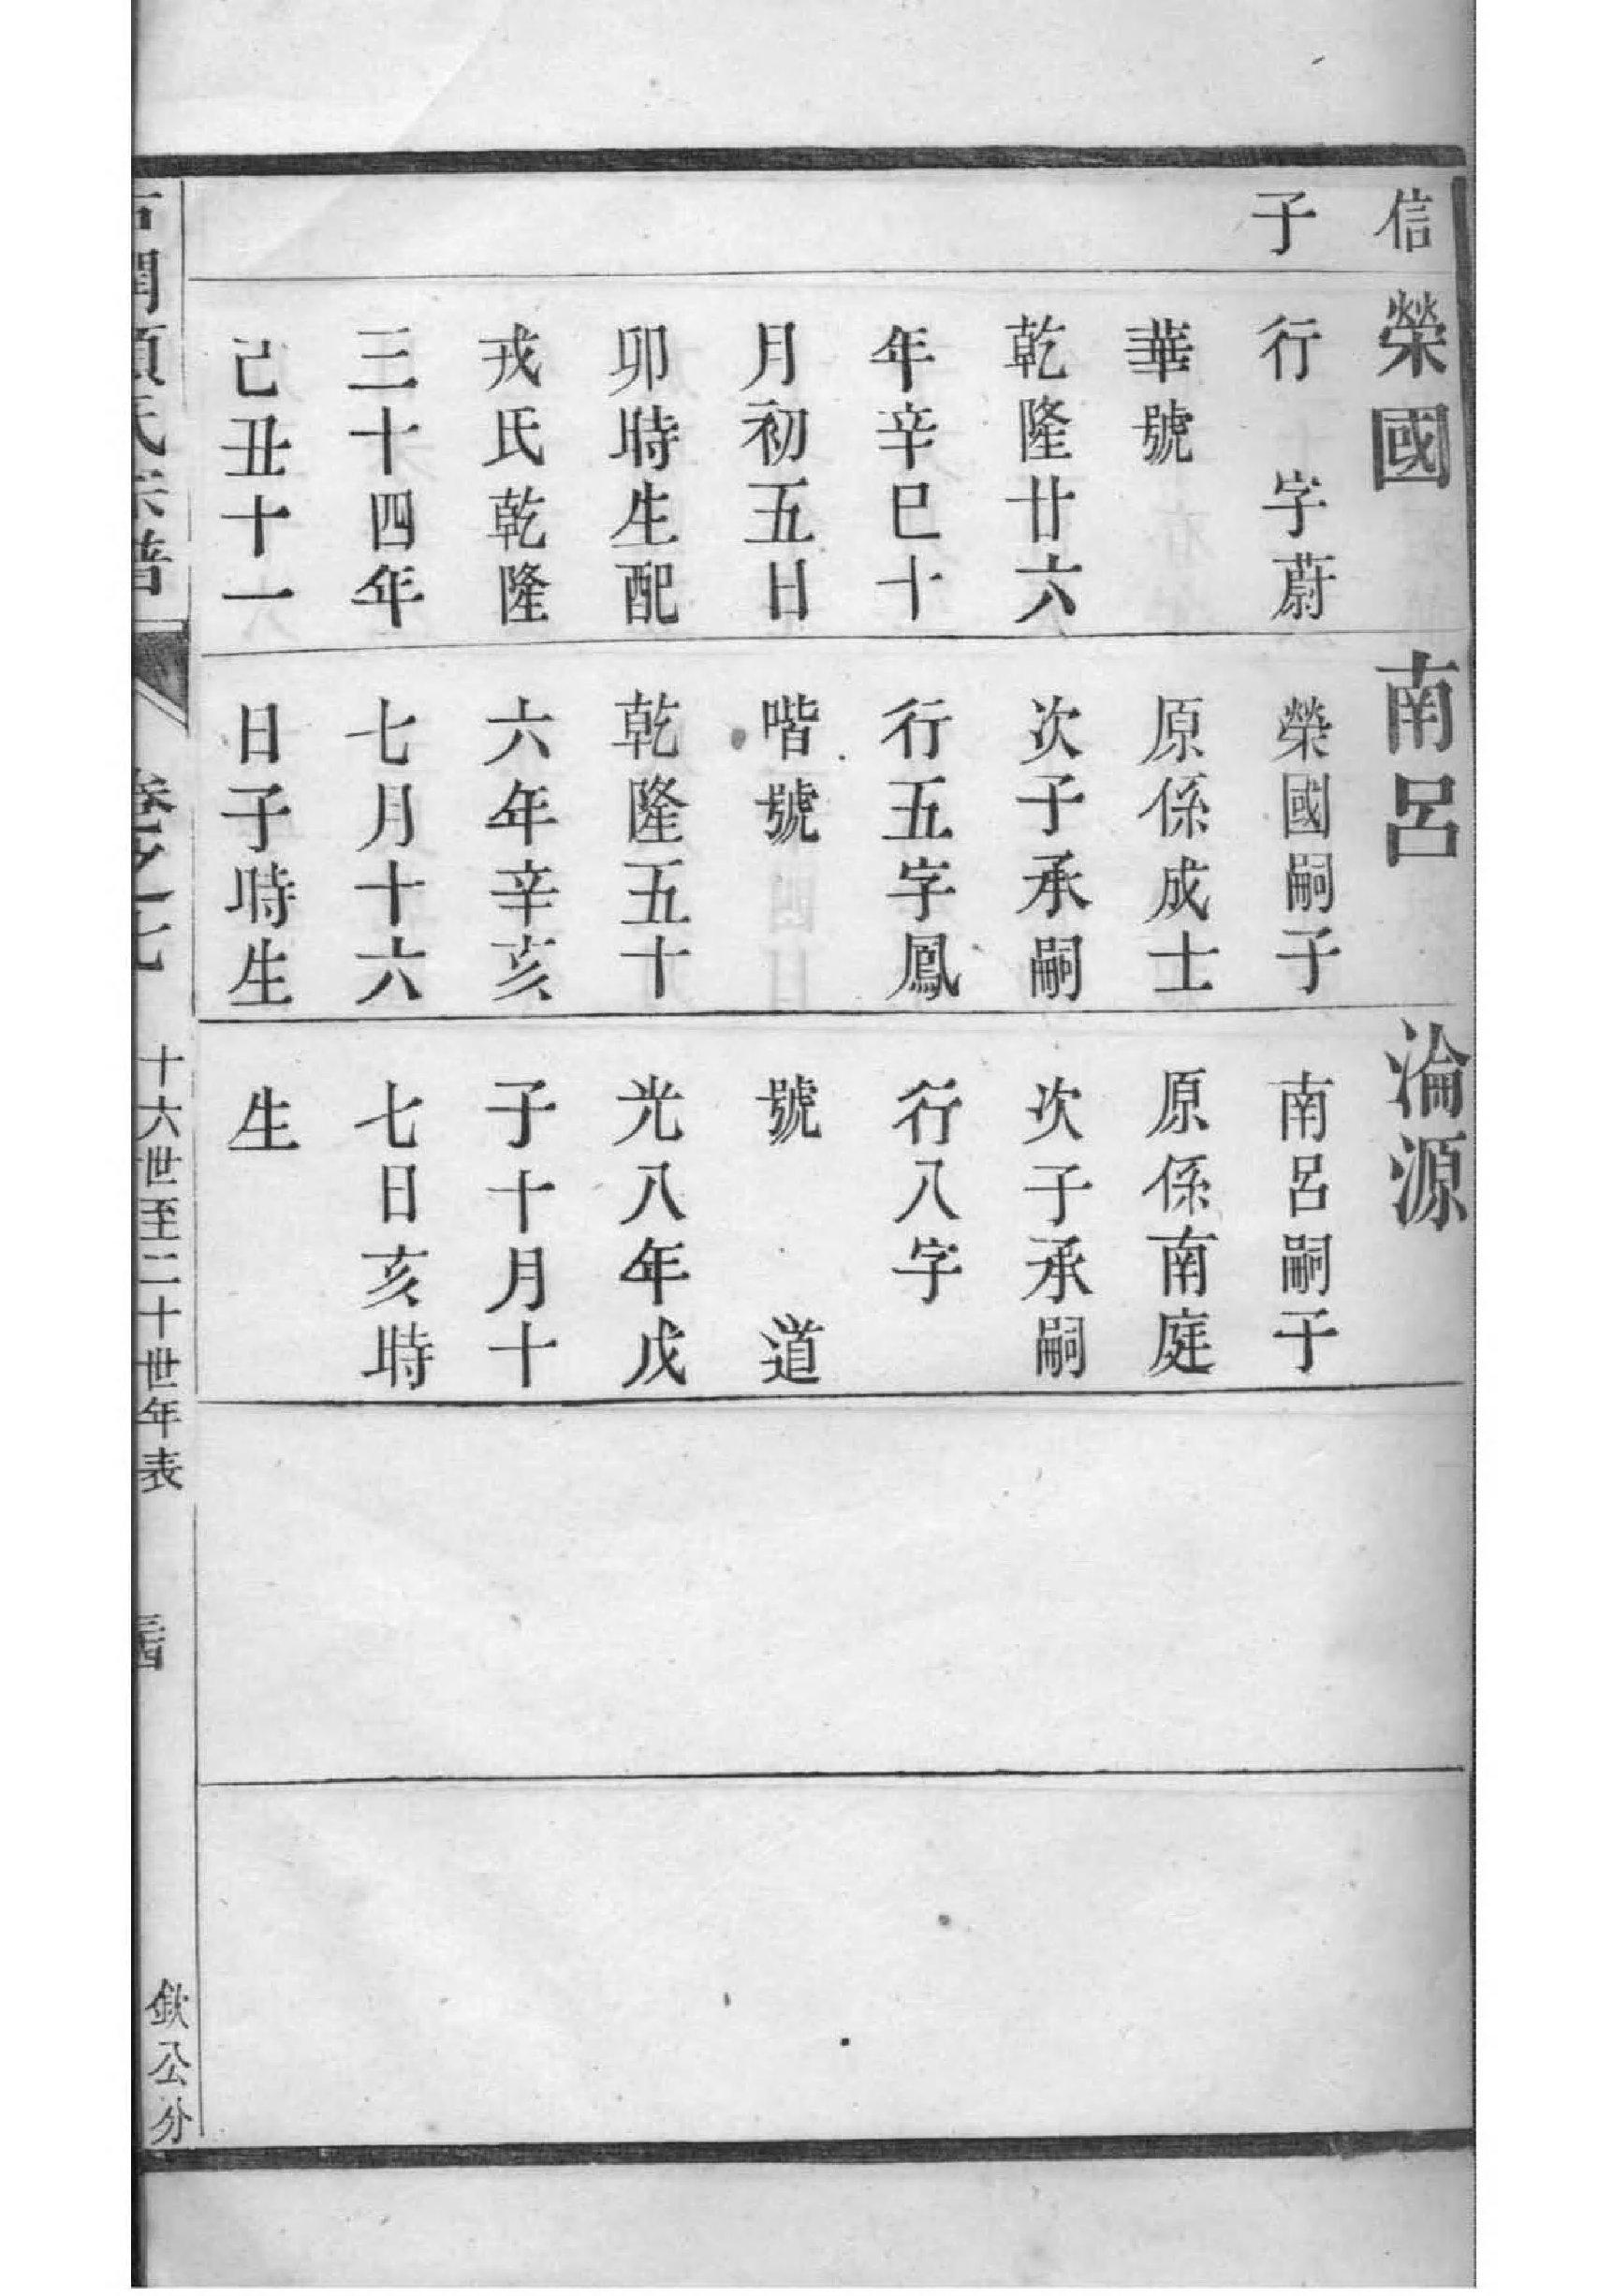 信
子
榮國
行　字蔚
華號
乾隆廿六
年辛巳十
月初五日
卯時生配
戎氏乾隆
三十四年
己丑十一
南呂
榮國嗣子
原係成士
次子承嗣
行五字鳳
喈號
乾隆五十
六年辛亥
七月十六
日子時生
淪源
南呂嗣子
原係南庭
次子承嗣
行八字
號　道
光八年戊
子十月十
七日亥時
生
氏宗譜
卷之七
十六世至二十世年表
欽公分